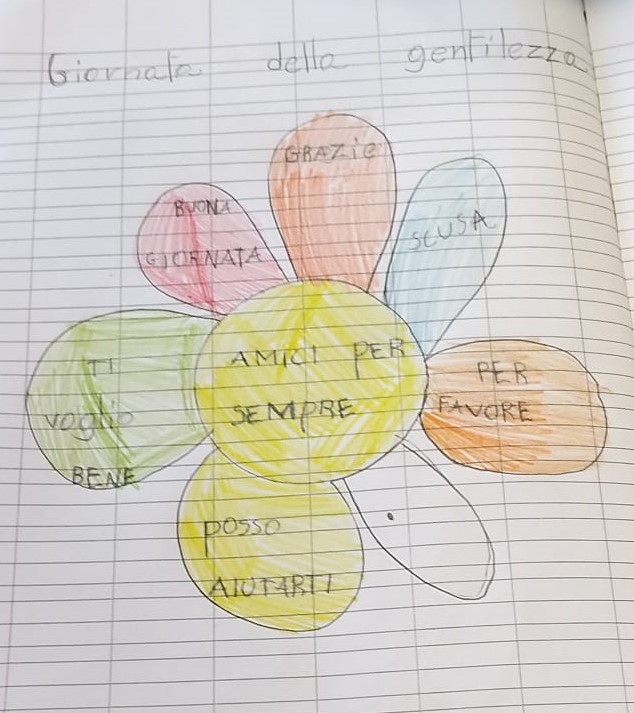 Giornata della gentilezza
GRAZIE
BUONA
GIORNATA
SCUSA
AMICI PER
SEMPRE
TI
voglio
BENE
PER
FAVORE
POSSO
AIUTARTI